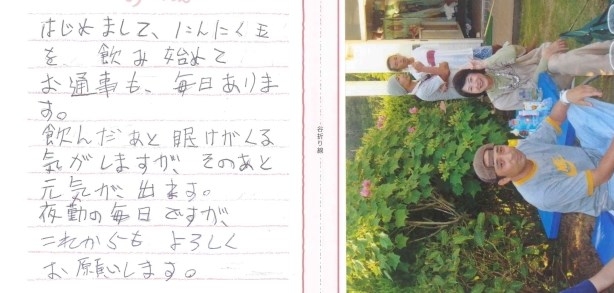 はじめまして、にんにく玉
を、飲み始めて
お通事も、毎日ありま
す。
飲んだあと眠けがくる
気がしますが、そのあと
元気が、出ます。
夜勤の毎日ですが、
これからも よろしく
お願いします。
谷折り線